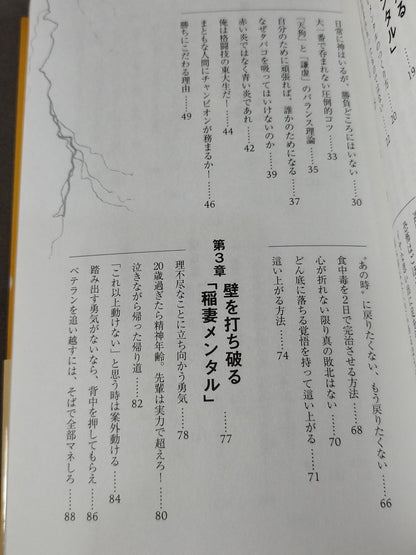 る
メンタル」
19
20
21
日常に神はいるが、勝負どころにはいない……30
大一番で呑まれない圧倒的コツ……33
「天狗」と「謙虚」のバランス理論……35
自分のために頑張れば、誰かのためになる……37
なぜタバコを吸ってはいけないのか……39
赤い炎ではなく青い炎であれ……42
俺は格闘技の東大生だ！……44
まともな人間にチャンピオンが務まるか！……46
勝ちにこだわる理由……49
“あの時”に戻りたくない、もう戻りたくない……66
食中毒を2日で完治させる方法……68
心が折れない限り真の敗北はない……70
どん底に落ちる覚悟を持って這い上がる……71
這い上がる方法……74
第3章 壁を打ち破る
「稲妻メンタル」……77
理不尽なことに立ち向かう勇気……78
20歳過ぎたら精神年齢、先輩は実力で超えろ！……80
泣きながら帰った帰り道……82
「これ以上動けない」と思う時は案外動ける……84
踏み出す勇気がないなら、背中を押してもらえ……86
ベテランを追い越すには、そばで全部マネしろ……88